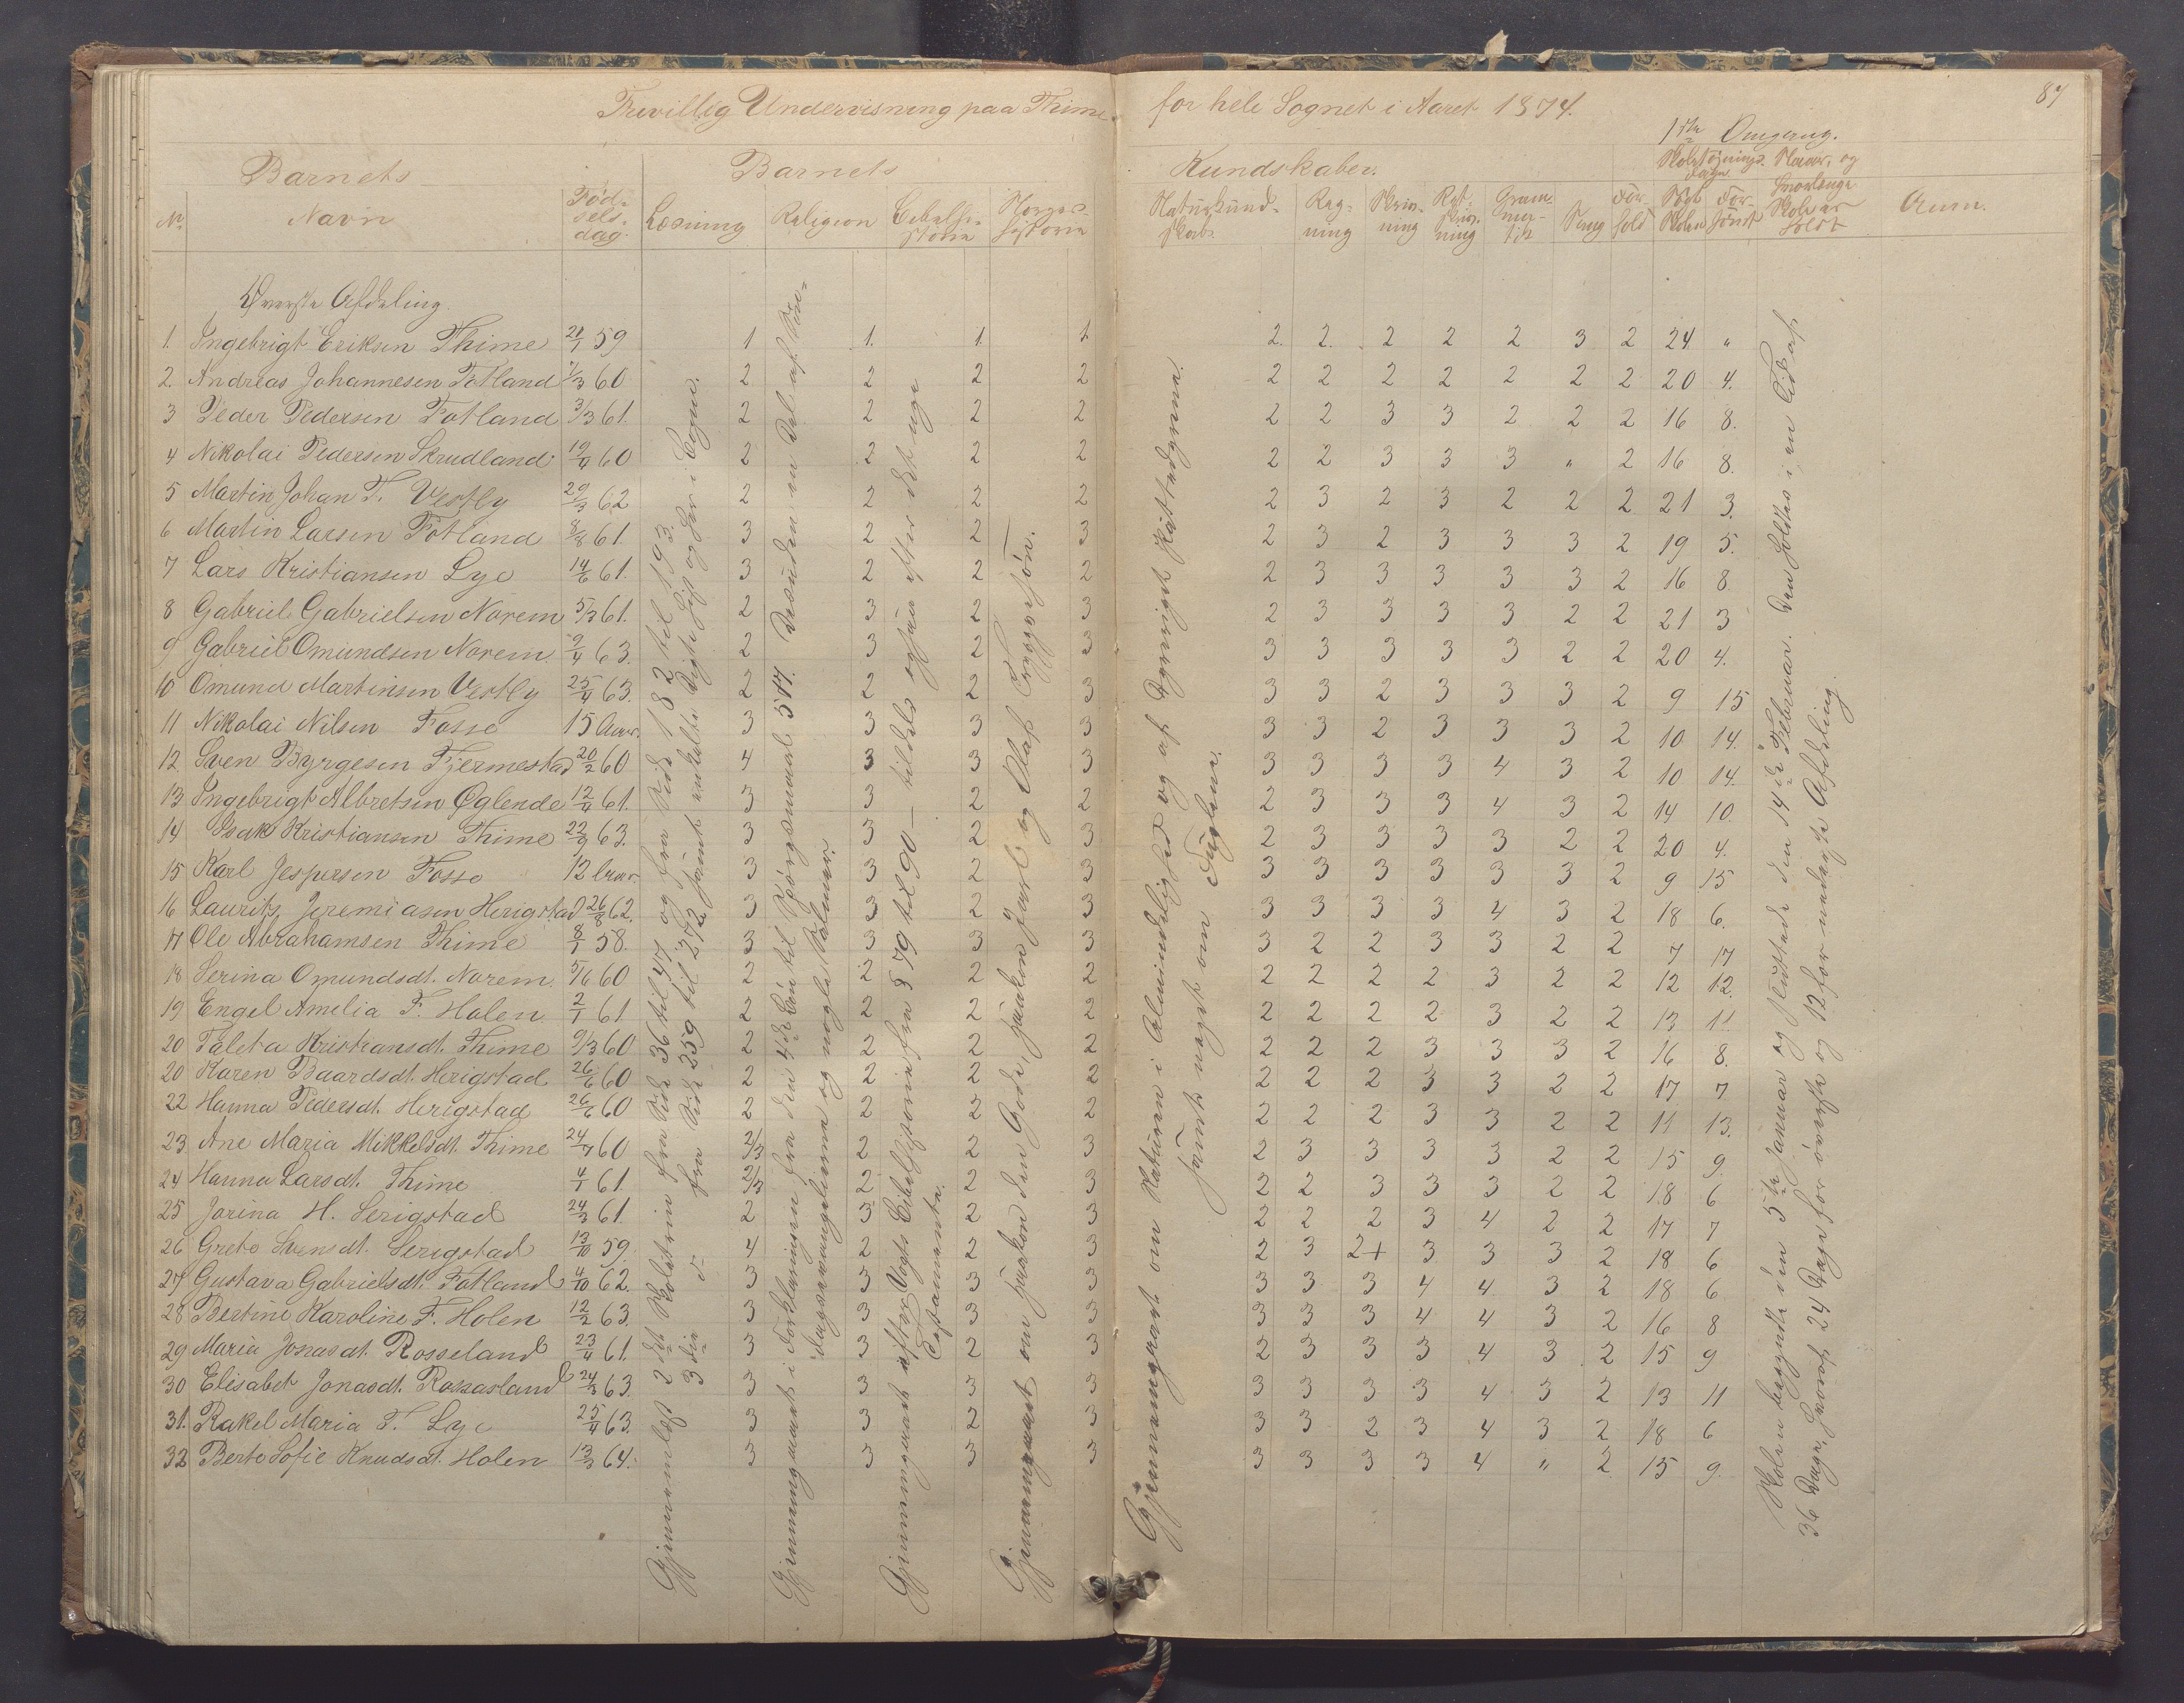 Frivillig Undervisning paa Thime for hele Sognet i Aaret 1874.
87
1ste Omgang.
Barnets
Barnets
Kundskaber.
Skolesøgnings-dage
Skoleaar, og hvorlænge Skole er holdt
№ Navn Fødselsdag. Læsning Religion Bibelhistorie Norgeshistorie Naturkundskab. Regning Skrivning Retskrivning Grammatik Sang Forhold Søgt Skolen Forsømt Anm.
Øverste Afdeling.
1. Ingebrigt Eriksen Thime 21/1 59 1 1. 1. 1 2. 2. 2 2 2 3 2 24 "
2. Andreas Johannesen Fotland 7/3 60 2 2 2 2 2 2 2 2 2 2 2 20 4.
3 Peder Pedersen Fotland 3/3 61. 2 2 2 2 2 2 3 3 2 2 2 16 8.
4 Nikolai Pedersen Skrudland 19/4 60 2 2 2 2 2 2 3 3 3 " 2 16 8.
5 Martin Johan T. Vestly 29/3 62 2 2 2 2 2 3 2 3 2 2 2 21 3.
6 Martin Larsen Fotland 8/8 61. 3 2 2 3 2 3 2 3 3 3 2 19 5.
7 Lars Kristiansen Lye 14/6 61. 3 2 2 2 2 3 3 3 3 3 2 16 8
8 Gabriel Gabrielsen Norem 5/3 61. 2 3 2 3 2 3 3 3 3 2 2 21 3
9 Gabriel Omundsen Norem 9/4 63. 2 3 2 3 3 3 3 3 3 2 2 20 4.
10 Omund Martinsen Vestly 25/4 63. 2 2 2 3 3 3 2 3 3 3 2 9 15
11 Nikolai Nilsen Fosse 15 Aar. 3 3 3 3 3 3 2 3 3 3 2 10 14.
12. Sven Byrgesen Fjermestad 20/2 60 4 3 3 3 3 3 3 3 4 3 2 10 14.
13 Ingebrigt Albretsen Øglende 12/4 61. 3 3 2 2 2 3 3 3 4 3 2 14 10.
14 Isak Kristiansen Thime 22/9 63. 3 3 2 3 2 3 3 3 3 2 2 20 4.
15 Karl Jespersen Fosse 12 Aar. 3 3 2 3 3 3 3 3 3 3 2 9 15
16 Lauritz Jeremiasen Herigstad 26/8 62. 3 3 2 3 3 3 3 3 4 3 2 18 6.
17 Ole Abrahamsen Thime 8/1 58. 3 3 3 3 3 2 2 3 3 2 2 7 17
18 Serina Omundsdt. Norem 5/6 60 2 2 2 2 2 2 2 2 3 2 2 12 12.
19 Engel Amelia F. Holen 2/1 61 2 2 2 2 2 2 2 2 3 2 2 13 11
20 Taleta Kristiansdt. Thime 9/3 60 2 2 2 2 2 2 2 3 3 3 2 16 8.
20 Karen Baardsdt. Herigstad 26/6 60 2 2 2 2 2 2 2 3 3 2 2 17 7
22 Hanna Pedersdt. Herigstad 26/6 60 2 2 2 2 2 2 2 3 3 2 2 11 13.
23 Ane Maria Mikkelsdt. Thime 24/7 60 2/3 2 2 3 2 3 3 3 3 2 2 15 9.
24 Hanna Larsdt. Thime 4/1 61. 2/3 2 2 3 2 2 3 3 3 2 2 18 6
25 Jorina H. Serigstad 24/3 61. 2 3 2 3 2 2 2 3 4 2 2 17 7
26 Grete Svensdt. Serigstad 13/10 59. 4 2 2 3 2 3 2+ 3 3 3 2 18 6
27 Gustava Gabrielsdt. Fotland 4/10 62. 3 3 3 3 3 3 3 4 4 3 2 18 6
28 Bertine Karoline F. Holen 12/2 63. 3 3 3 3 3 3 3 4 4 3 2 16 8
29 Maria Jonasdt. Rosseland 23/4 61. 3 3 2 3 2 3 3 3 4 3 2 15 9
30 Elisabet Jonasdt. Rossaland 24/3 63. 3 3 3 3 3 3 3 3 4 3 2 13 11
31. Rakel Maria T. Lye 25/4 63. 3 3 2 3 3 3 2 3 4 3 2 18 6
32 Berte Sofie Knudsdt. Holen 13/3 64. 3 3 3 3 3 3 3 3 4 " 2 15 9
Gjennemlæst 2det Skoletrin fra Side 36 til 47 og fra Side 182 til 193.
3die d- fra Side 259 til 272 samt enkelte Digte hist og her i Bogen.
Gjennemgaaet i Forklaringen fra den 4de Bøn til Spørgsmaal 517. Desuden en Del af Søn-
dagsevangelierne og nogle Salmer.
Gjennemgaaet efter Vogts Bibelhistorie fra § 79 til 90 — tildels ogsaa efter det nye
Testamente.
Gjennemgaaet om Haakon den Gode, Haakon Jarl og Olaf Trygvesøn.
Gjennemgaaet om Naturen i Almindelighed og af Dyreriget Pattedyrene.
samt noget om Fuglene.
Skolen begyndte den 5te Januar og sluttede den 14de Februar. Den holdtes i en Tid af
36 Dage, hvoraf 24 Dage for øverste og 12 for nederste Afdeling.